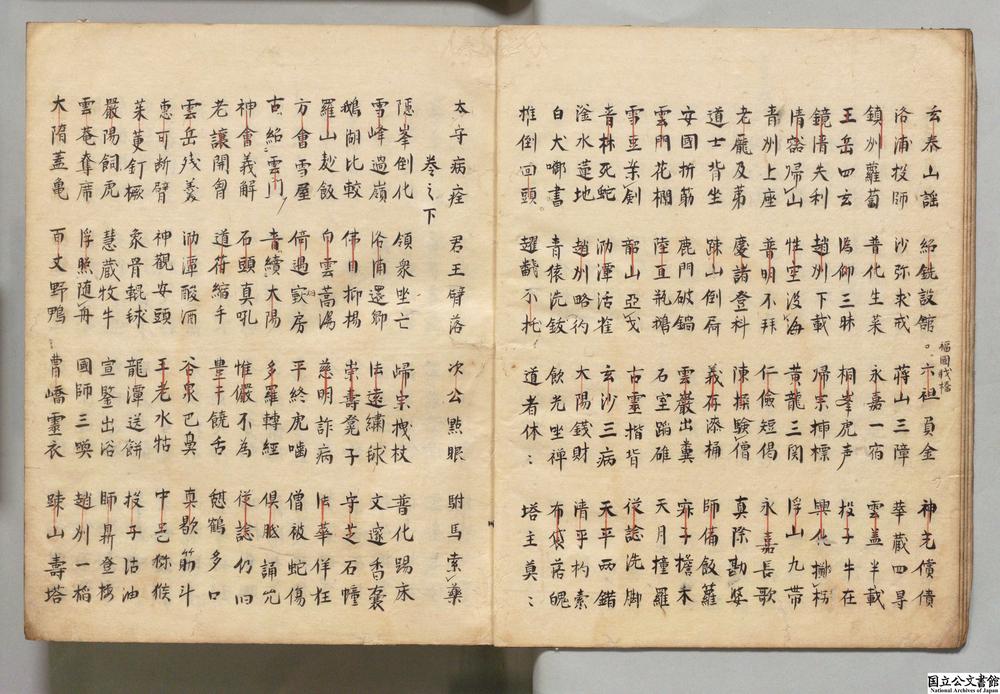 玄泰山謡 紹銑設館 六祖員金 神光償債
福國 橋
洛浦投師 沙弥求戒 蒋山三障 華蔵四尋
鎮州蘿蔔 普化生菜 永嘉一宿 雲盖半載
玉岳四玄 溈仰三昧 桐峯虎声 投子牛在
鏡清失利 趙州下載 帰宗挿標 興化擲枴
清豁帰山 性空没海 黄龍三関 浮山九帯
青州上座 普明不拝 仁儉短偈 永嘉長歌
老龐及第 慶諸登科 陳操験僧 真際勘婆
道士背坐 踈山倒屙 義存漆桶 師備飯蘿
安國折筋 鹿門破鍋 雲巌出糞 寂子擔禾
雲門花欄 陸亘瓶鵝 石室蹋碓 天月撞羅
雪豆 剣 韶山亞戈 古霊揩背 従諗洗脚
青林死蛇 泐潭活雀 玄沙三病 天平両錯
滏水莚地 趙州略彴 大陽銭財 清平杓索
白犬啣書 青猿洗鉢 飲光坐禅 布袋落魄
推倒回頭 趯飜不托 道者休〻 塔主莫〻
太守病痊 君王臂落 次公點眼 駙馬索藥
巻之下
隱峯倒化 領衆坐亡 帰宗拽杖 普化踢床
雪峰過嶺 洛浦還郷 法遠繍毬 文邃香嚢
鵝湖比較 佛日抑揚 崇壽凳子 守芝石幢
羅山炒飯 白雲蒿湯 慈明詐病 法華佯狂
方會雪屋 倚遇寝房 平終虎嚙 僧被蛇傷
古紹雲門 青續大陽 多羅轉経 俱胝誦咒
神會義解 石頭真吼 惟儼不為 従諗仍旧
老譲開胷 道符縮手 豊干饒舌 憨鶴多口
雲岳残羹 泐潭酸酒 谷泉巴鼻 真歇筋斗
惠可断臂 神觀安頭 王老水牯 中邑猕猴
茱萸釘橛 象骨輥毬 龍潭送餅 投子沽油
嚴陽飼虎 慧蔵牧牛 宣鑒出浴 師昇登樓
雲菴奪席 浮照随舟 國師三喚 趙州一榻
大隋蓋亀 百丈野鴨 曹嶠霊衣 踈山壽塔
国立公文書館
National Archives of Japan